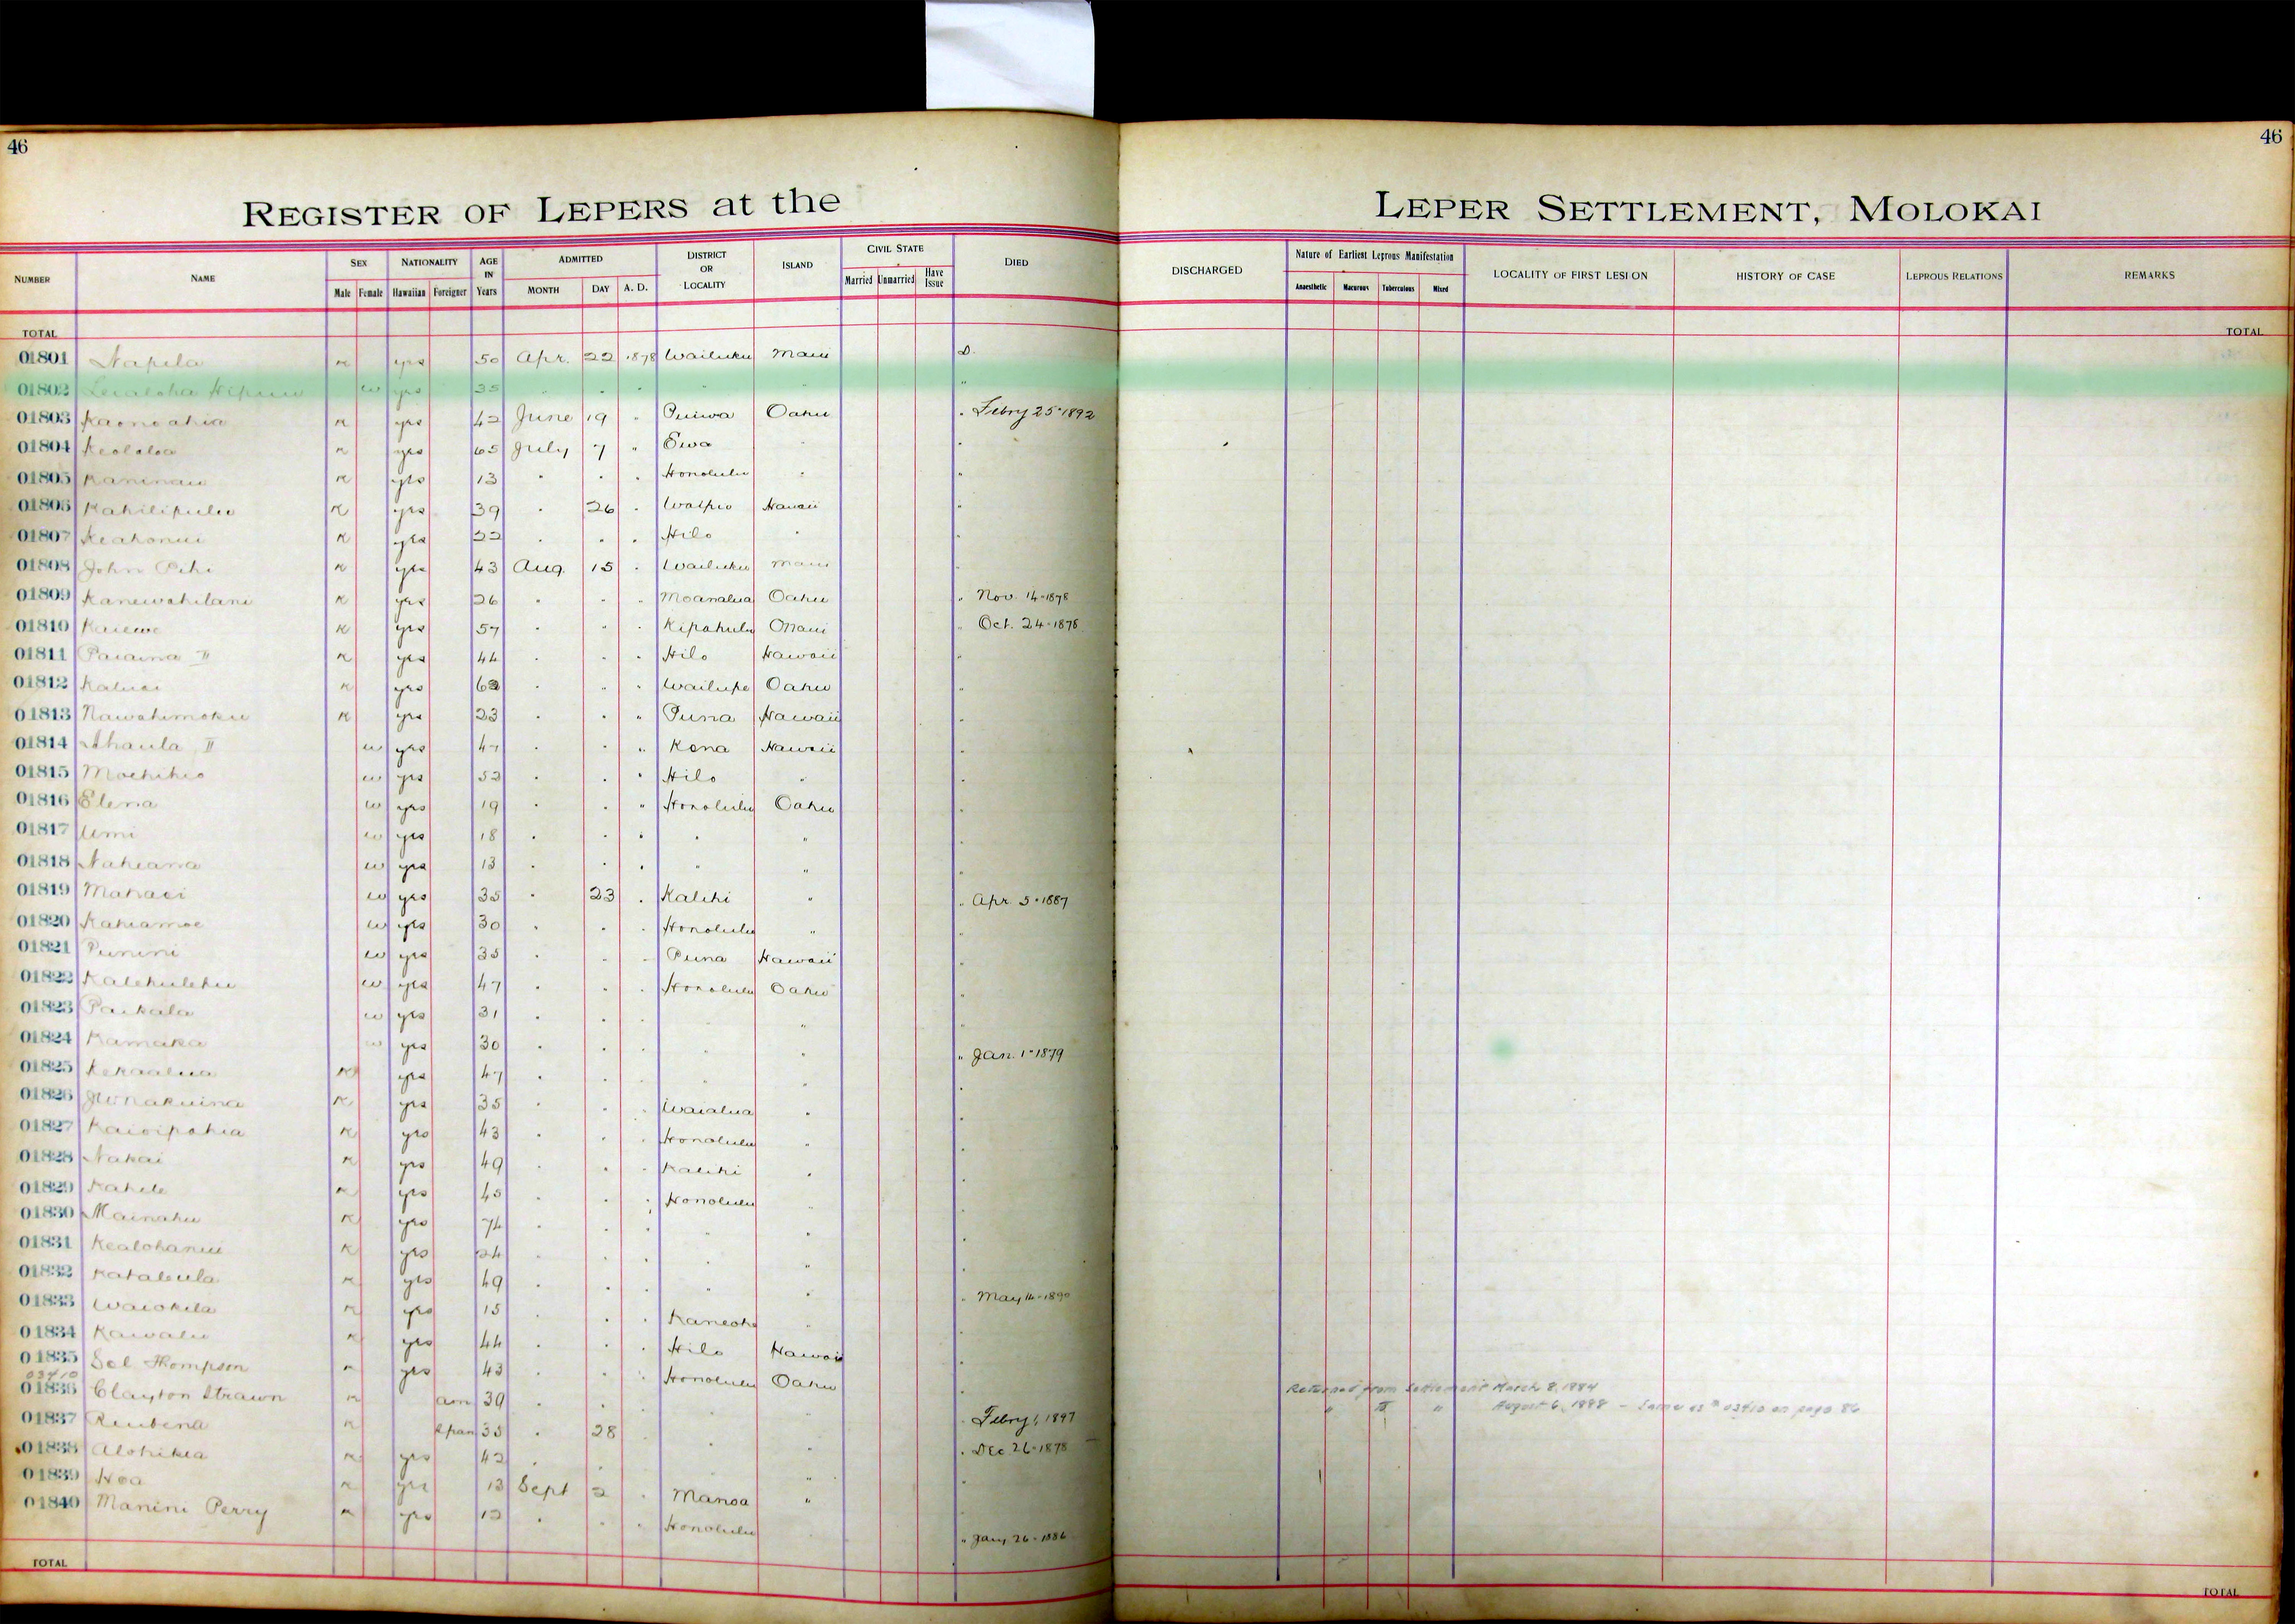 46
46
REGISTER OF LEPERS at the
LEPER SETTLEMENT, MOLOKAI
NUMBER NAME SEX Male Female NATIONALITY Hawaiian Foreigner AGE IN Years ADMITTED MONTH DAY A. D. DISTRICT OR LOCALITY ISLAND CIVIL STATE Married Unmarried Have Issue DIED
DISCHARGED Nature of Earliest Leprous Manifestation Anaesthetic Macurous Tuberculous Mixed LOCALITY OF FIRST LESION HISTORY OF CASE LEPROUS RELATIONS REMARKS
TOTAL TOTAL
01801 Napela m yes 50 Apr. 22 1878 Wailuku Maui D.
01802 Lealoha w yes 35 " " " " " "
01803 Kaonoahia m yes 42 June 19 " Puiwa Oahu " Febry 25-1892
01804 Keololoa m yes 65 July 7 " Ewa " "
01805 Kaninau m yes 13 " " " Honolulu " "
01806 Kahilipulu m yes 39 " 26 " Waipio Hawaii "
01807 Keahonui m yes 22 " " " Hilo " "
01808 John m yes 43 Aug. 15 " Wailuku Maui "
01809 Kanewahilani m yes 26 " " " Moanalua Oahu " Nov. 14-1878
01810 Kaiewe m yes 57 " " " Kipahulu Maui " Oct. 24-1878
01811 Paiaina II m yes 44 " " " Hilo Hawaii "
01812 Kaluai m yes 62 " " " Wailupe Oahu "
01813 Nawahimoku m yes 23 " " " Puna Hawaii "
01814 Ahaula II w yes 47 " " " Kona Hawaii "
01815 Moehihio w yes 52 " " " Hilo " "
01816 Elena w yes 19 " " " Honolulu Oahu "
01817 Umi w yes 18 " " " " " "
01818 Naheana w yes 13 " " " " " "
01819 Mahaei w yes 35 " 23 " Kalihi " " Apr. 5-1887
01820 Kahiamoe w yes 30 " " " Honolulu " "
01821 Punini w yes 35 " " " Puna Hawaii "
01822 Kalehulehu w yes 47 " " " Honolulu Oahu "
01823 Paikala w yes 31 " " " " "
01824 Kamaka w yes 30 " " " " " Jan. 1-1879
01825 Kekaalua m yes 47 " " " " "
01826 m yes 35 " " " Waialua " "
01827 Kaioipahia m yes 43 " " " Honolulu " "
01828 Nakai m yes 49 " " " Kalihi " "
01829 Kahele m yes 45 " " " Honolulu " "
01830 Mainahu m yes 74 " " " " "
01831 Kealohanui m yes 24 " " " " "
01832 Kahalaula m yes 49 " " " " " May 14-1890
01833 Waiokila m yes 15 " " " Kaneohe " "
01834 Kawalu m yes 44 " " " Hilo Hawaii "
01835 Sol Thompson m yes 43 " " " Honolulu Oahu "
03410
01836 Clayton Strawn m am 39 " " " " " Febry 1, 1897 Returned from Settlement March 8, 1884
" " " August 6, 1888 - Same as # 03410 on page 86
01837 Reubena m Span 35 " 28 " " " Dec 26-1878
01838 Alohikea m yes 42 " " " "
01839 Hoa m yes 13 Sept 2 " Manoa "
01840 Manini Perry m yes 12 " " " Honolulu " Jany 26-1886
TOTAL TOTAL